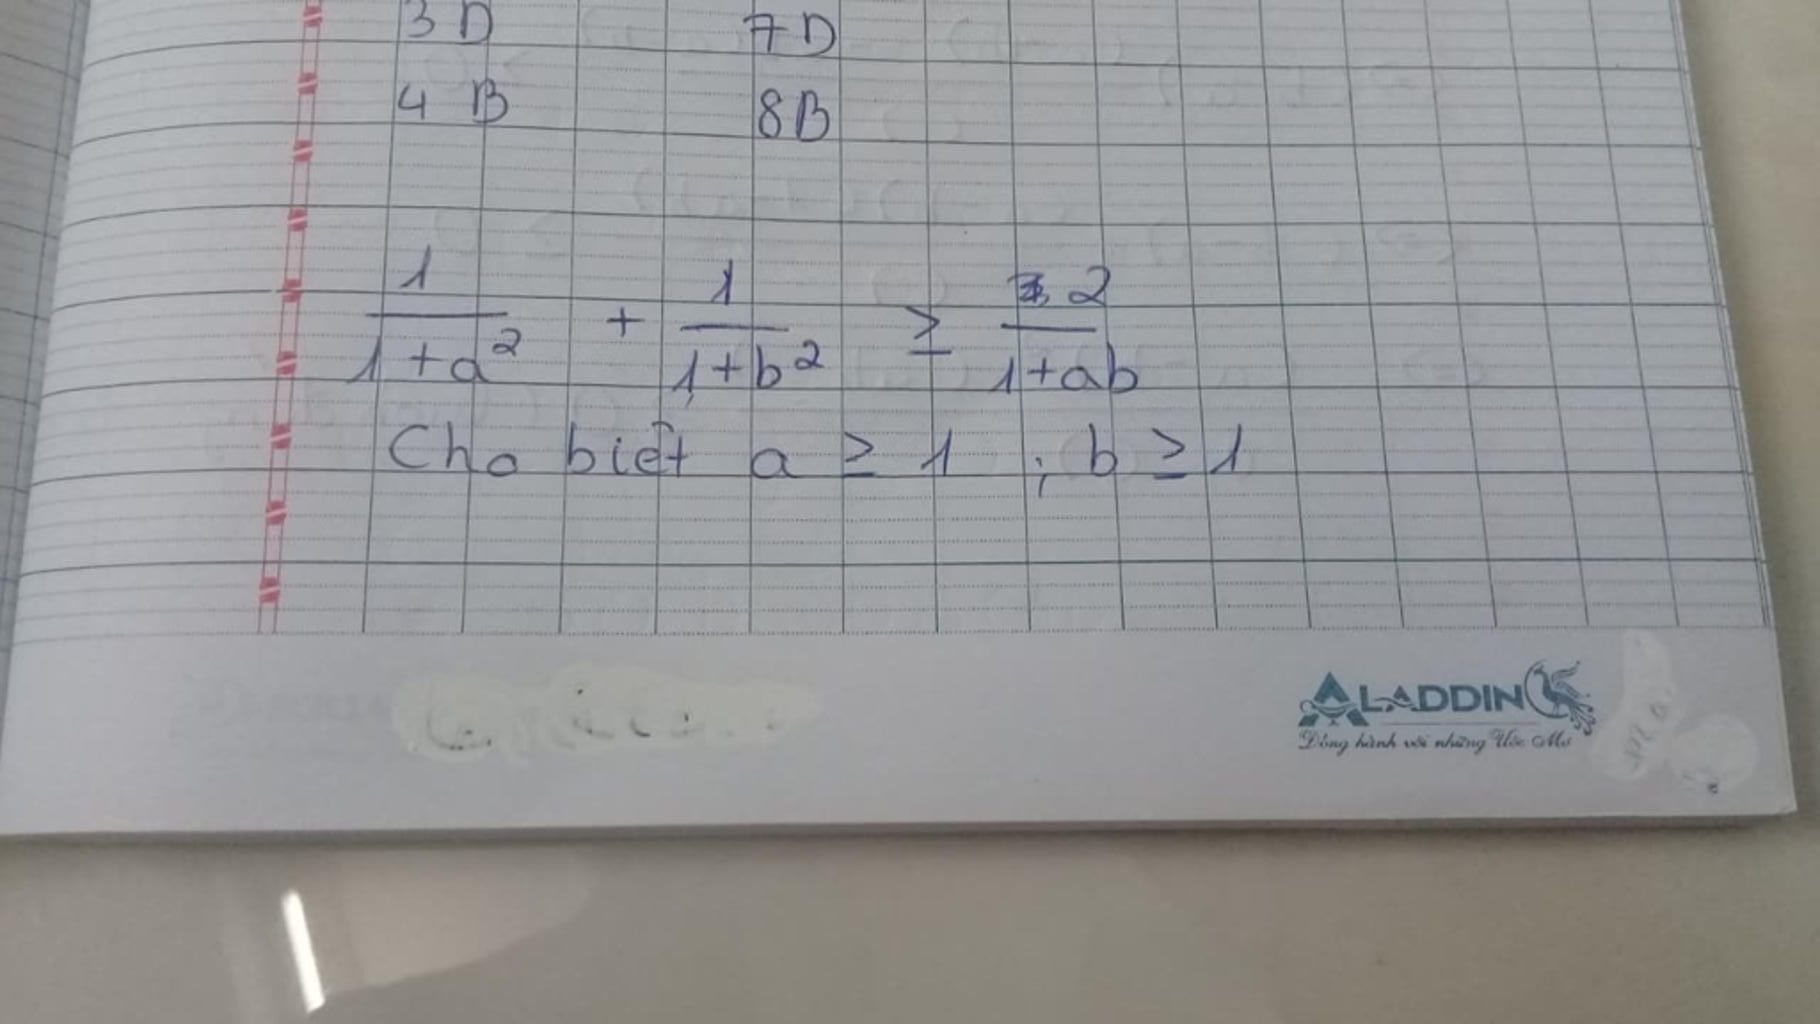 3 D 7 D
4 B 8 B
1/(1+a²) + 1/(1+b²) ≥ 2/(1+ab)
Cho biết a ≥ 1 ; b ≥ 1
ALADDIN
Đồng hành với những Ước Mơ